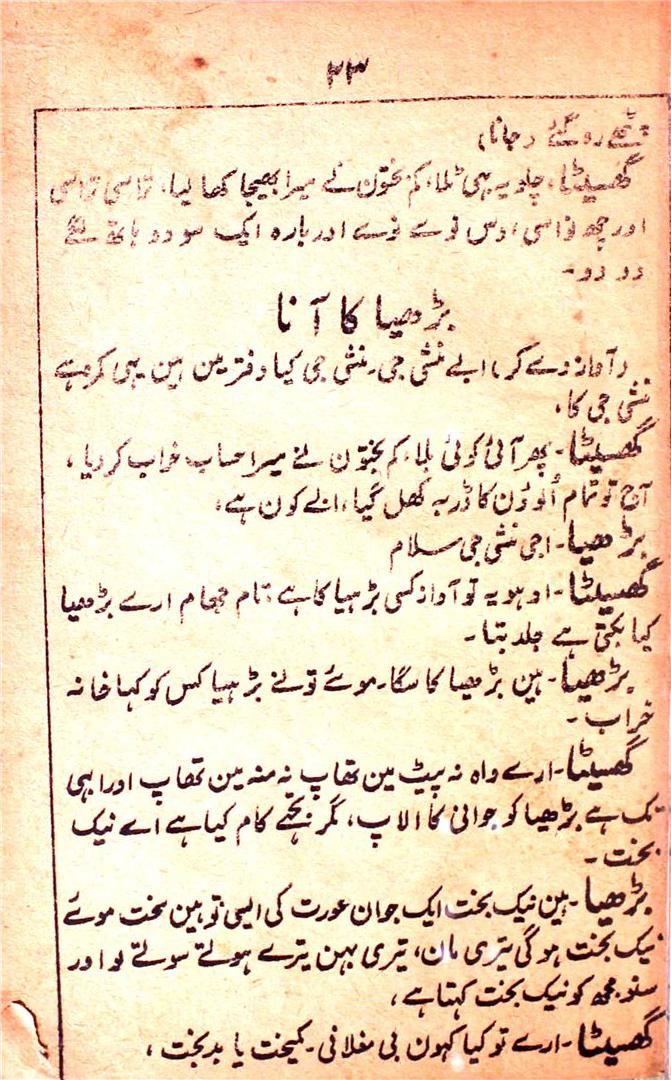 ۲۳
رہ گئے (جانا)
گھسیٹا۔ چلو یہ بھی ٹلا، کم بختون نے میرا بھیجا کھا لیا، تراسی تراسی
اور چھ نواسی اوس نوے نوے اور بارہ ایک سو دو ہاتھ لگے
دو دو۔
بڑھیا کا آنا
(آواز دے کر) ابے منشی جی۔ منشی جی کیا دفتر مین ہین یہی کمرہ ہے
منشی جی کا،
گھسیٹا۔ پھر آئی کوئی بلا، کم بختون نے میرا حساب خراب کر دیا،
آج تو تمام اُلوؤن کا ڈربہ کھل گیا، ابے کون ہے،
بڑھیا۔ اجی منشی جی سلام
گھسیٹا۔ اوہو یہ تو آواز کسی بڑہیا کا ہے ارے بڑھیا
کیا بکتی ہے جلد بتا۔
بڑھیا۔ ہین بڑھیا کا سگا۔ موئے تونے بڑہیا کس کو کہا خانہ
خراب۔
گھسیٹا۔ ارے واہ نہ پیٹ مین تھاپ نہ منہ مین تھاپ اور ابہی
تک ہے بڑھیا کو جوانی کا الاپ، مگر تجھے کام کیا ہے اے نیک
بخت۔
بڑھیا۔ ہین نیک بخت ایک جوان عورت کی ایسی توہین سخت موئے
نیک بخت ہوگی تیری مان، تیری بہن تیرے ہوتے سوتے لو اور
سنو مجھ کو نیک بخت کہتا ہے،
گھسیٹا۔ ارے تو کیا کہون بی مغلانی۔ کمبخت یا بدبخت،